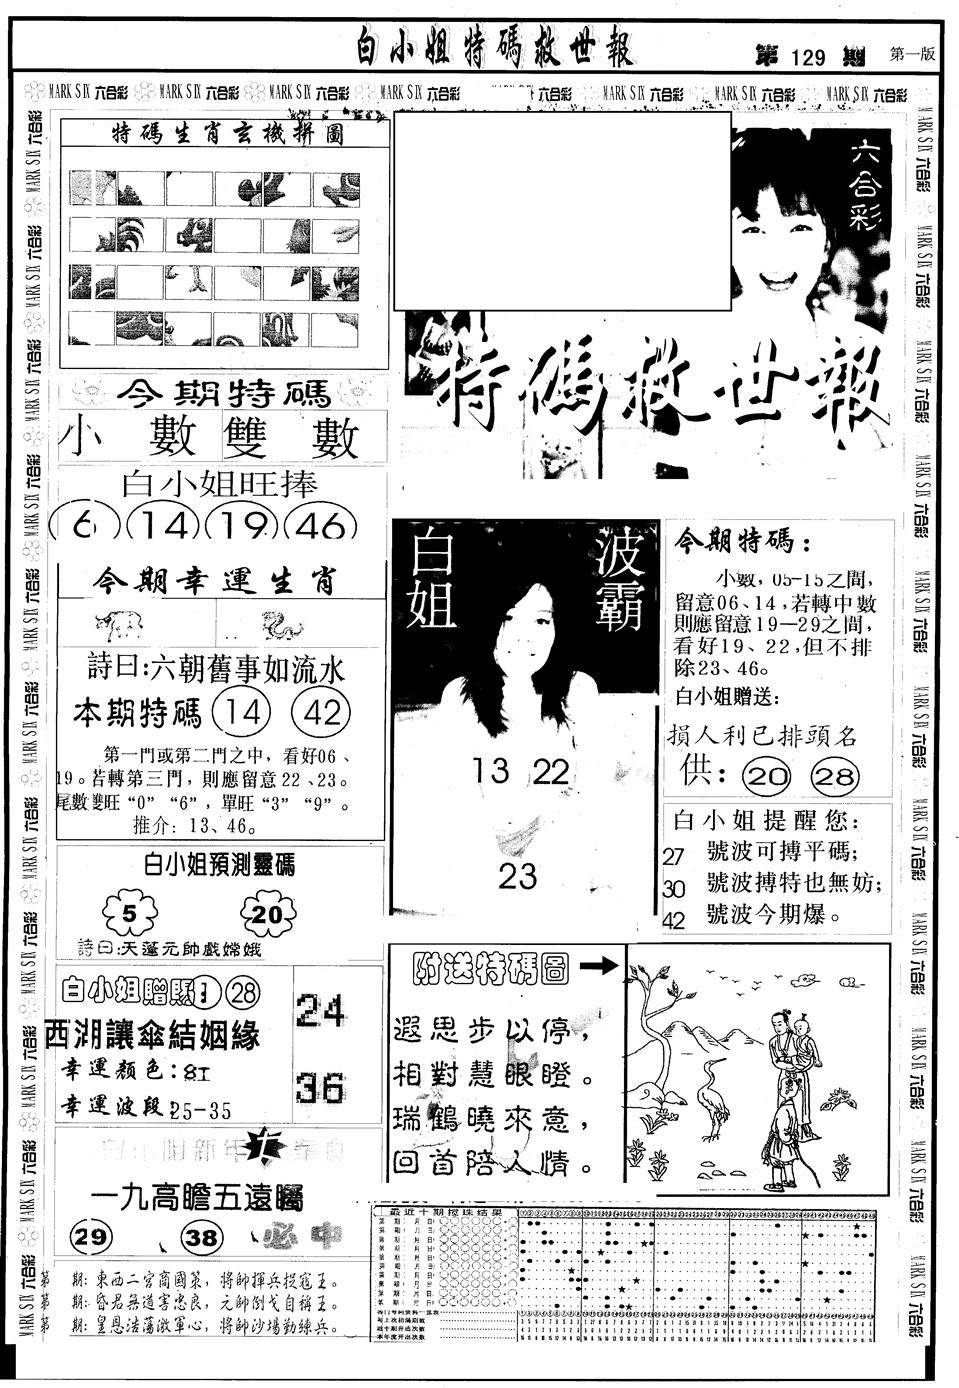 白小姐特碼救世報
第 129 期
第一版
MARK SIX 六合彩 MARK SIX 六合彩 MARK SIX 六合彩 MARK SIX 六合彩 MARK SIX 六合彩 MARK SIX 六合彩 MARK SIX 六合彩
特碼生肖玄機拼圖
六合彩
特碼救世報
今期特碼
小 數 雙 數
白小姐旺捧
6 14 19 46
今期幸運生肖
詩曰:六朝舊事如流水
本期特碼 14 42
第一門或第二門之中，看好06、
19。若轉第三門，則應留意22、23。
尾數雙旺“0”“6”，單旺“3”“9”。
推介：13、46。
白小姐預測靈碼
5 20
詩曰:天蓬元帥戲嫦娥
白小姐贈 28
西湖讓傘結姻緣
幸運顏色:紅
幸運波段:25-35
24
36
一九高瞻五遠矚
29 38 必中
第 期:東西二宮商國策，將帥揮兵捉寇王。
第 期:昏君無道害忠良，元帥倒戈自稱王。
第 期:皇恩浩蕩激軍心，將帥沙場勤練兵。
白姐
波霸
13 22
23
今期特碼:
小數，05-15之間，
留意06、14，若轉中數
則應留意19—29之間，
看好19、22，但不排
除23、46。
白小姐贈送:
損人利已排頭名
供: 20 28
白小姐提醒您:
27 號波可搏平碼;
30 號波搏特也無妨;
42 號波今期爆。
附送特碼圖
遐思步以停，
相對慧眼瞪。
瑞鶴曉來意，
回首陪人情。
最近十期攪珠結果